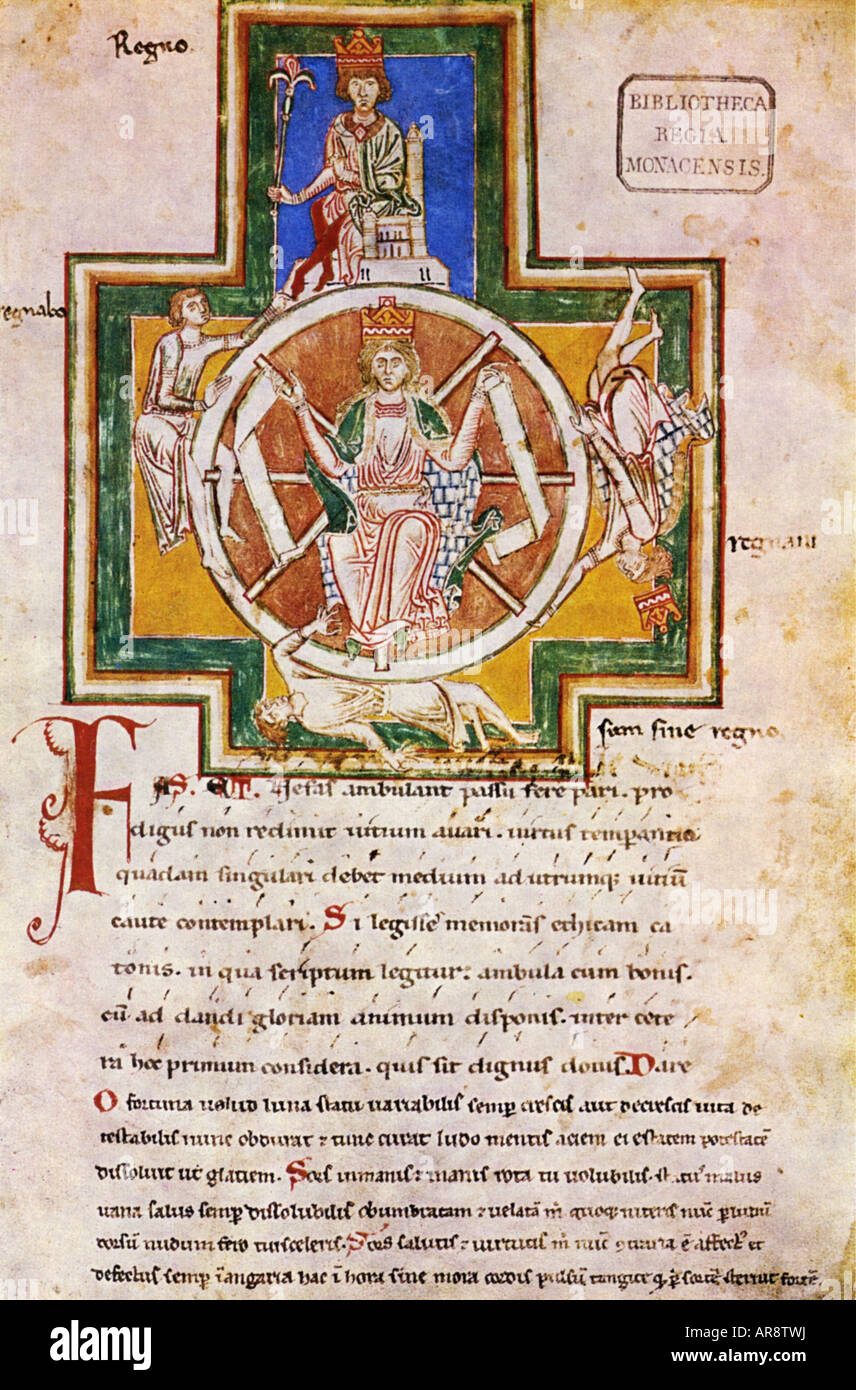 Regno
BIBLIOTHECA
REGIA
MONACENSIS.
regnabo
regnaui
sum sine regno
FAS. ET. Nefas ambulant passu fere pari. pro
digus non redimit uitium auari. uirtus temperantia
quadam singulari debet medium ad utrumq; uitiū
caute contemplari. Si legisse memoras ethicam ca
tonis. in qua scriptum legitur: ambula cum bonis.
cū ad dandi gloriam animum disponis. inter cete
ra hoc primum considera. quis sit dignus donis. Dare
O fortuna uelud luna statu uariabilis semp crescis aut decrescis uita de
testabilis nunc obdurat & tunc curat ludo mentis aciem egestatem potestatē
dissoluit ut glaciem. Sors inmanis & inanis rota tu uolubilis. status malus
uana salus semp dissolubilis obumbratam & uelatā m quoq; niteris nūc p ludū
dorsum nudum fero tui sceleris. Sors salutis & uirtutis m nūc gtraria ē affect et
defectus semp ī angaria hac ī hora sine mora cordis pulsū tangite q p sortē sternit fortē.
alamy
Image ID: AR8TWJ
www.alamy.com